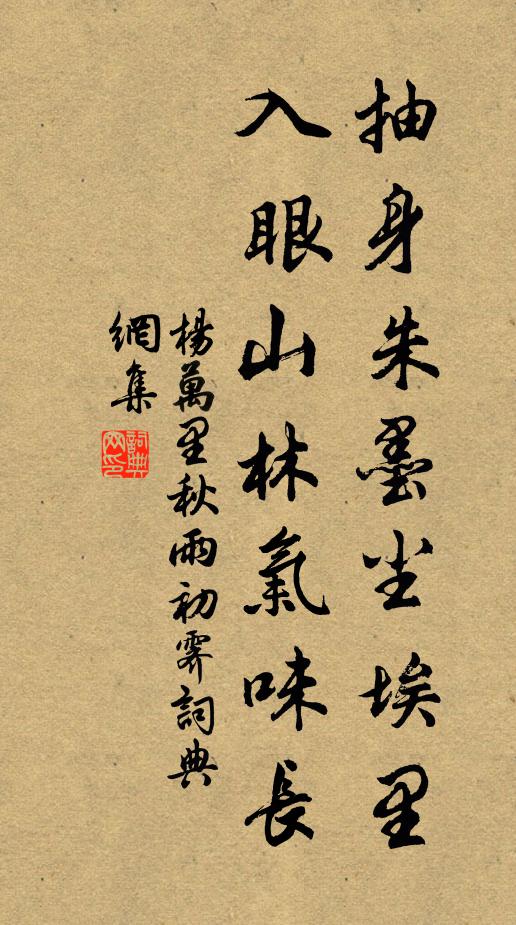 抽身朱墨尘埃里
入眼山林氣味長
楊萬里秋雨初霽詞典
網集
詞典網印